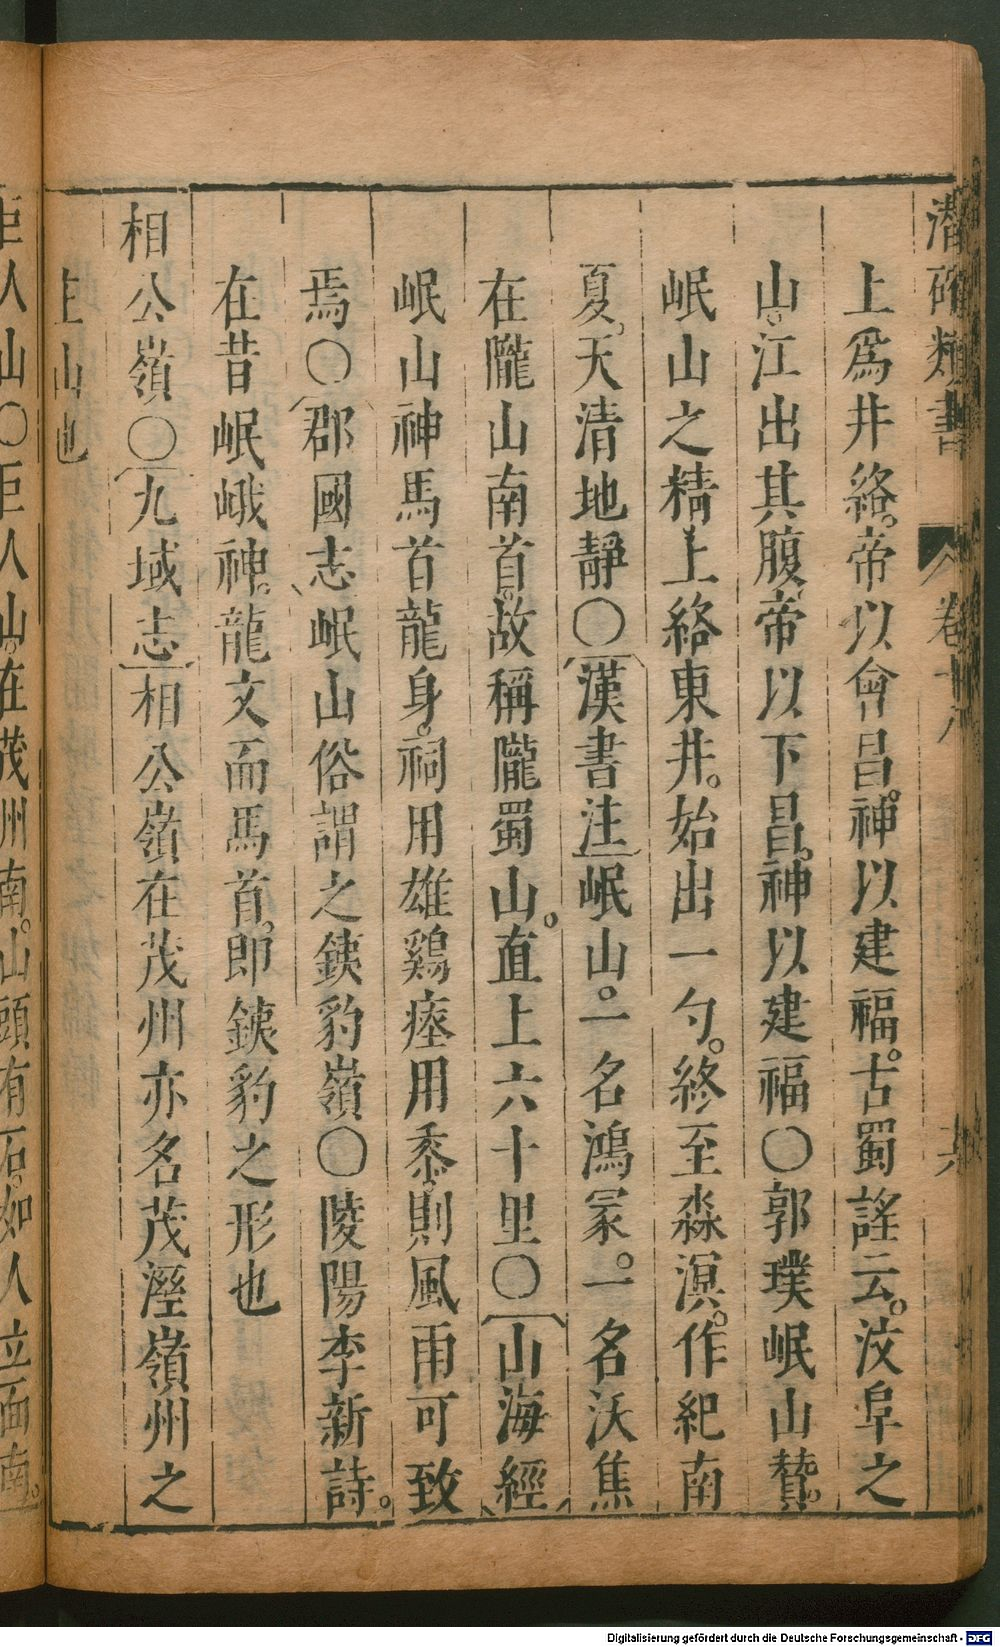 潛確類書 卷十八 六
上爲井絡。帝以會昌。神以建福。古蜀謠云。汶阜之
山。江出其腹。帝以下昌。神以建福〇郭璞岷山贊。
岷山之精。上絡東井。始出一勺。終至淼溟。作紀南
夏。天清地靜〇漢書注岷山。一名鴻冡。一名沃焦
在隴山南首。故稱隴蜀山。直上六十里〇山海經
岷山神馬首龍身。祠用雄鷄瘞用黍。則風雨可致
焉〇郡國志岷山俗謂之鐵豹嶺〇陵陽李新詩。
在昔岷峨神。龍文而馬首。即鐵豹之形也
相公嶺〇九域志相公嶺在茂州亦名茂溼嶺州之
主山也
巨人山〇巨人山。在茂州南。山頭有石。如人立面南。
Digitalisierung gefördert durch die Deutsche Forschungsgemeinschaft - DFG